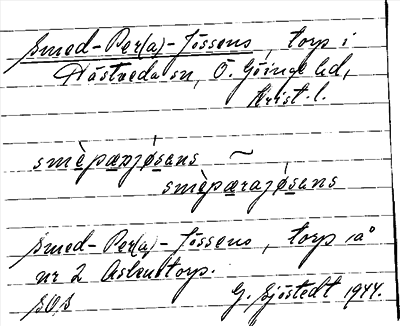 Smed-Per(a)-Jössens, torp i
Hästveda sn, Ö. Göinge hd,
Krist. l.
smèpænjǿsens ~
smèpærajǿsens
Smed-Per(a)-Jössens, torp på
nr 2 Askentorp.
G. Sjöstedt 1944.